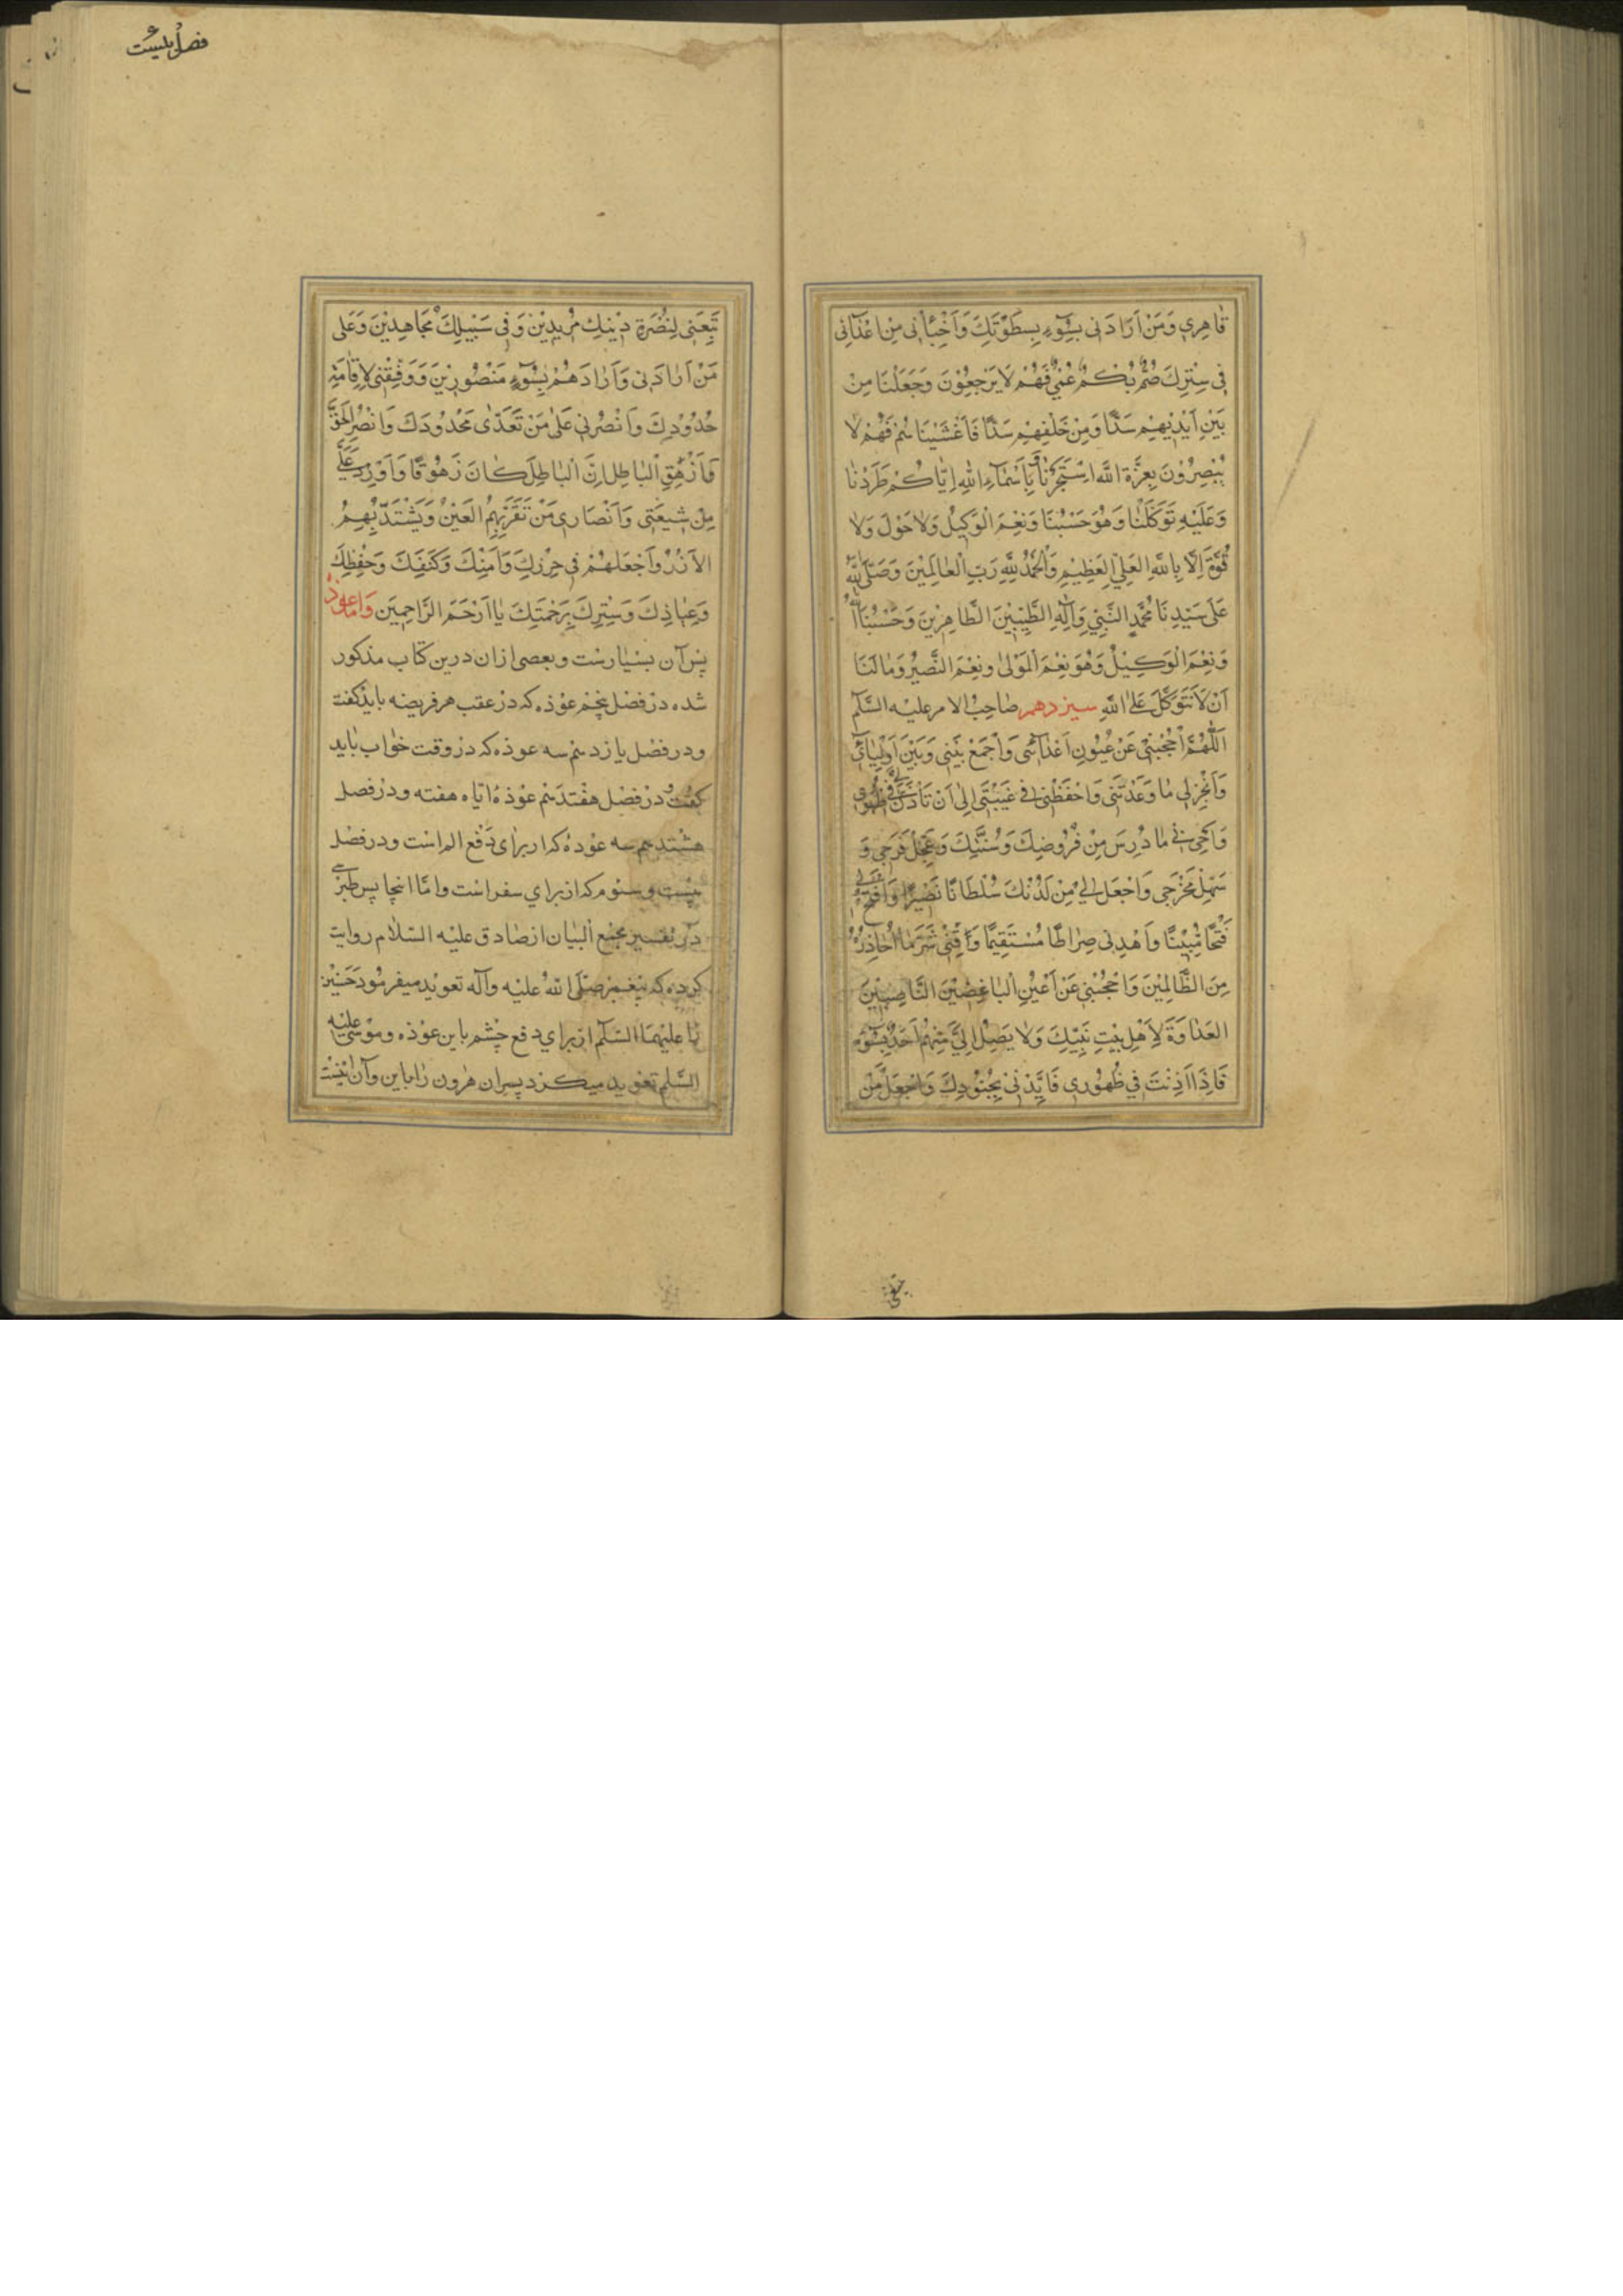 قٰاهِرِي وَمَنْ اَرَادَنى بِسُوۤءٍ بِسَطْوَتِكَ وَاَخْبَاَنى مِنْ اَعْدٰائى
فى سِتْرِكَ صُمٌّ بُكْمٌ عُمْىٌ فَهُمْ لَا يَرْجِعُوْنَ وَجَعَلْنَا مِنْ
بَيْنِ اَيْدِيْهِمْ سَدًّا وَمِنْ خَلْفِهِمْ سَدًّا فَاَغْشَيْنَاهُمْ فَهُمْ لا
يُبْصِرُوْنَ بِعِزَّةِ اللّٰهِ اسْتَجَرْنٰا وَبِاَسْمٰاۤءِ اللّٰهِ اِيّٰاكُمْ طَرَدْنٰا
وَعَلَيْهِ تَوَكَّلْنٰا وَهُوَ حَسْبُنَا وَنِعْمَ الْوَكِيْلُ وَلَا حَوْلَ وَلا
قُوَّةَ اِلّا بِاللّٰهِ الْعَلِىِّ الْعَظِيْمِ وَالْحَمْدُ لِلّٰهِ رَبِّ الْعٰالَمِيْنَ وَصَلَّى اللّٰهُ
عَلَى سَيِّدِنَا مُحَمَّدٍ النَّبِىِّ وَآلِهِ الطَّيِّبِيْنَ الطّاهِرِيْنَ وَحَسْبُنَا اللّٰهُ
وَنِعْمَ الْوَكِيْلُ وَهُوَ نِعْمَ الْمَوْلٰى وَنِعْمَ النَّصِيْرُ وَمٰا لَنَا
اَنْ لَا نَتَوَكَّلَ عَلَى اللّٰهِ سيزدهم صٰاحِبُ الامر عليه السَّلٰم
اَللّٰهُمَّ احْجُبْنى عَنْ عُيُونِ اَعْدٰائى وَاجْمَعْ بَيْنى وَبَيْنَ اَوْلِيٰائى
وَاَنْجِزْ لى مٰا وَعَدْتَنى وَاحْفَظْنى فى غَيْبَتى اِلٰى اَنْ تَأْذَنَ لى فى ظُهُورى
وَاَحْىِ بى مٰا دُرِسَ مِنْ فُرُوضِكَ وَسُنَنِكَ وَعَجِّلْ فَرَجى وَ
سَهِّلْ مَخْرَجى وَاجْعَلْ لى مِنْ لَدُنْكَ سُلْطَانًا نَصِيْرًا وَافْتَحْ لى
فَتْحًا مُبِيْنًا وَاهْدِنى صِرَاطًا مُسْتَقِيْمًا وَقِنى شَرَّ مٰا اُحٰاذِرُهُ
مِنَ الظّالِمِيْنَ وَاحْجُبْنى عَنْ اَعْيُنِ الْبٰاغِضِيْنَ النَّاصِبِيْنَ
الْعَدٰاوَةَ لِاَهْلِ بَيْتِ نَبِيِّكَ وَلا يَصِلُ اِلَىَّ مِنْهُمْ اَحَدٌ بِسُوۤءٍ
فَاِذَا اَذِنْتَ فى ظُهُورى فَاَيِّدْنى بِجُنُوْدِكَ وَاجْعَلْ مَنْ
فصل بيست
يَتْبَعُنى لِنُصْرَةِ دِيْنِكَ مُرِيدِيْنَ وَفى سَبِيْلِكَ مُجَاهِدِيْنَ وَعَلى
مَنْ اَرَادَنى وَاَرَادَهُمْ بِسُوۤءٍ مَنْصُورِيْنَ وَوَفِّقْنى لِاِقٰامَةِ
حُدُوْدِكَ وَانْصُرْنى عَلٰى مَنْ تَعَدّٰى مَحْدُودَكَ وَانْصُرِ الْحَقَّ
وَاَزْهِقِ الْبٰاطِلَ اِنَّ الْبٰاطِلَ كَانَ زَهُوْقًا وَاَوْرِدْ عَلَىَّ
مِنْ شيعَتى وَاَنْصَارى مَنْ تَقَرُّ بِهِمُ الْعَيْنُ وَيَشْتَدُّ بِهِمُ
الْاَزْرُ وَاجْعَلْهُمْ فى حِرْزِكَ وَاَمْنِكَ وَكَنَفِكَ وَحِفْظِكَ
وَعِيٰاذِكَ وَسِتْرِكَ بِرَحْمَتِكَ يٰا اَرْحَمَ الرَّاحِمِيَن وَامّا عوذ
پس آن بسيارست وبعضى ازان درين كتاب مذكور
شده در فصل پنجم عوذه كه در عقب هر فريضه بايد كفت
ودر فصل يازدهم سه عوذه كه در وقت خواب بايد
كفت ودر فصل هفتدهم عوذهٔ ايّام هفته ودر فصل
هشتدهم سه عوذه كه از براى دفع الم است ودر فصل
بيست وسوم كه از براي سفر است وامّا اينجا پس طبرسى
در تفسير مجمع البيان از صادق عليه السّلام روايت
كرده كه پيغمبر صلّى اللّٰه عليه وآله تعويد ميفرمود حسنين
را عليهما السّلٰم از براي دفع چشم باين عوذه وموسى عليه
السّلم تعويد ميكرد پسران هٰرون را باين وآن اينست